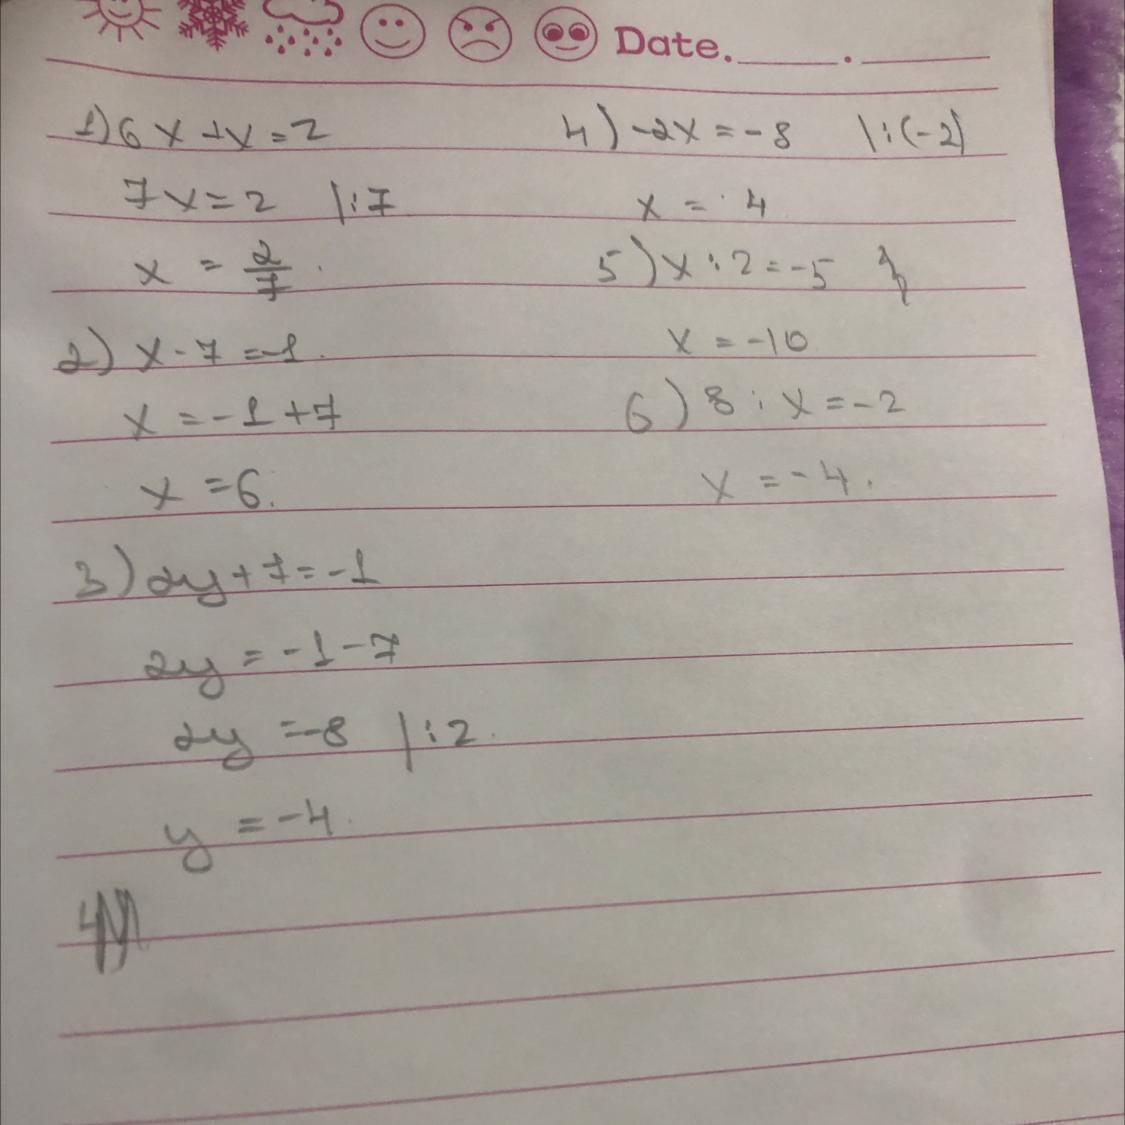 Date.
1) 6x+x=2
7x=2 |:7
x = 2/7
2) x-7=-1.
x = -1+7
x = 6.
3) 2y+7=-1
2y = -1-7
2y = -8 |:2.
y = -4.
4) -2x = -8 |:(-2)
x = 4
5) x:2=-5
x = -10
6) 8:x=-2
x = -4.